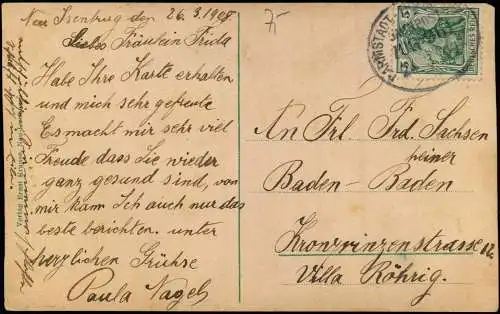 Neu Isenburg den 26.3.1908
Liebes Fräulein Frida
Habe Ihre Karte erhalten
und mich sehr gefreut
Es macht mir sehr viel
Freude dass Sie wieder
ganz gesund sind, von
mir kann Ich auch nur das
beste berichten. unter
herzlichen Grüsse
Paula Nagel
7-
DARMSTADT
5
5
An Frl Frd. Sachsen
Baden-Baden
Kronprinzenstrasse
Villa Röhrig.
Verlag